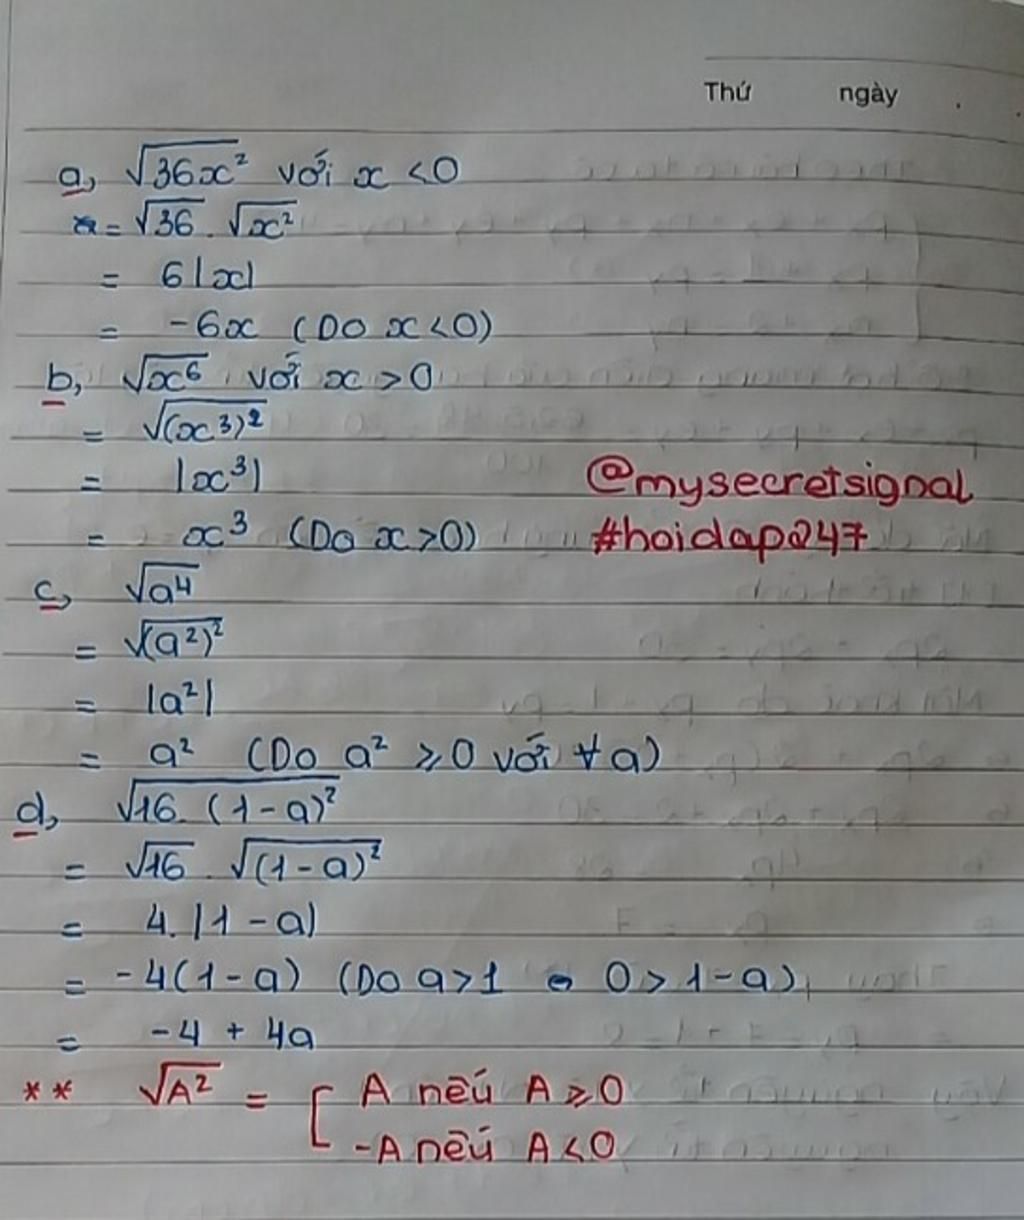 Thứ ngày
a, √36x² với x < 0
= √36 . √x²
= 6|x|
= -6x (Do x < 0)
b, √x⁶ với x > 0
= √(x³)²
= |x³|
@mysecretsignal
= x³ (Do x > 0)
#hoidap247
c, √a⁴
= √(a²)²
= |a²|
= a² (Do a² ⩾ 0 với ∀ a)
d, √16 . (1 - a)²
= √16 . √(1 - a)²
= 4. |1 - a|
= -4(1 - a) (Do a > 1 0 > 1 - a)
= -4 + 4a
** √A² = [ A nếu A ⩾ 0
-A nếu A < 0